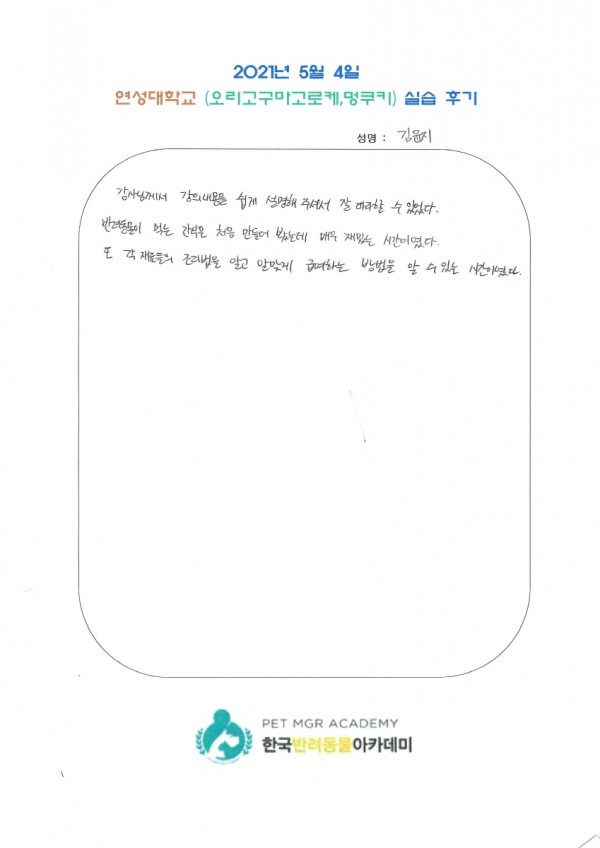 2021년 5월 4일
연성대학교 (오리고구마고로케,멍쿠키) 실습 후기
성명 : 김윤지
강사님께서 강의내용을 쉽게 설명해 주셔서 잘 따라할 수 있었다.
반려동물이 먹는 간식은 처음 만들어 봤는데 매우 재밌는 시간이였다.
또 각 재료들의 조리법을 알고 알맞게 급여하는 방법을 알 수 있는 시간이였다.
PET MGR ACADEMY
한국반려동물아카데미